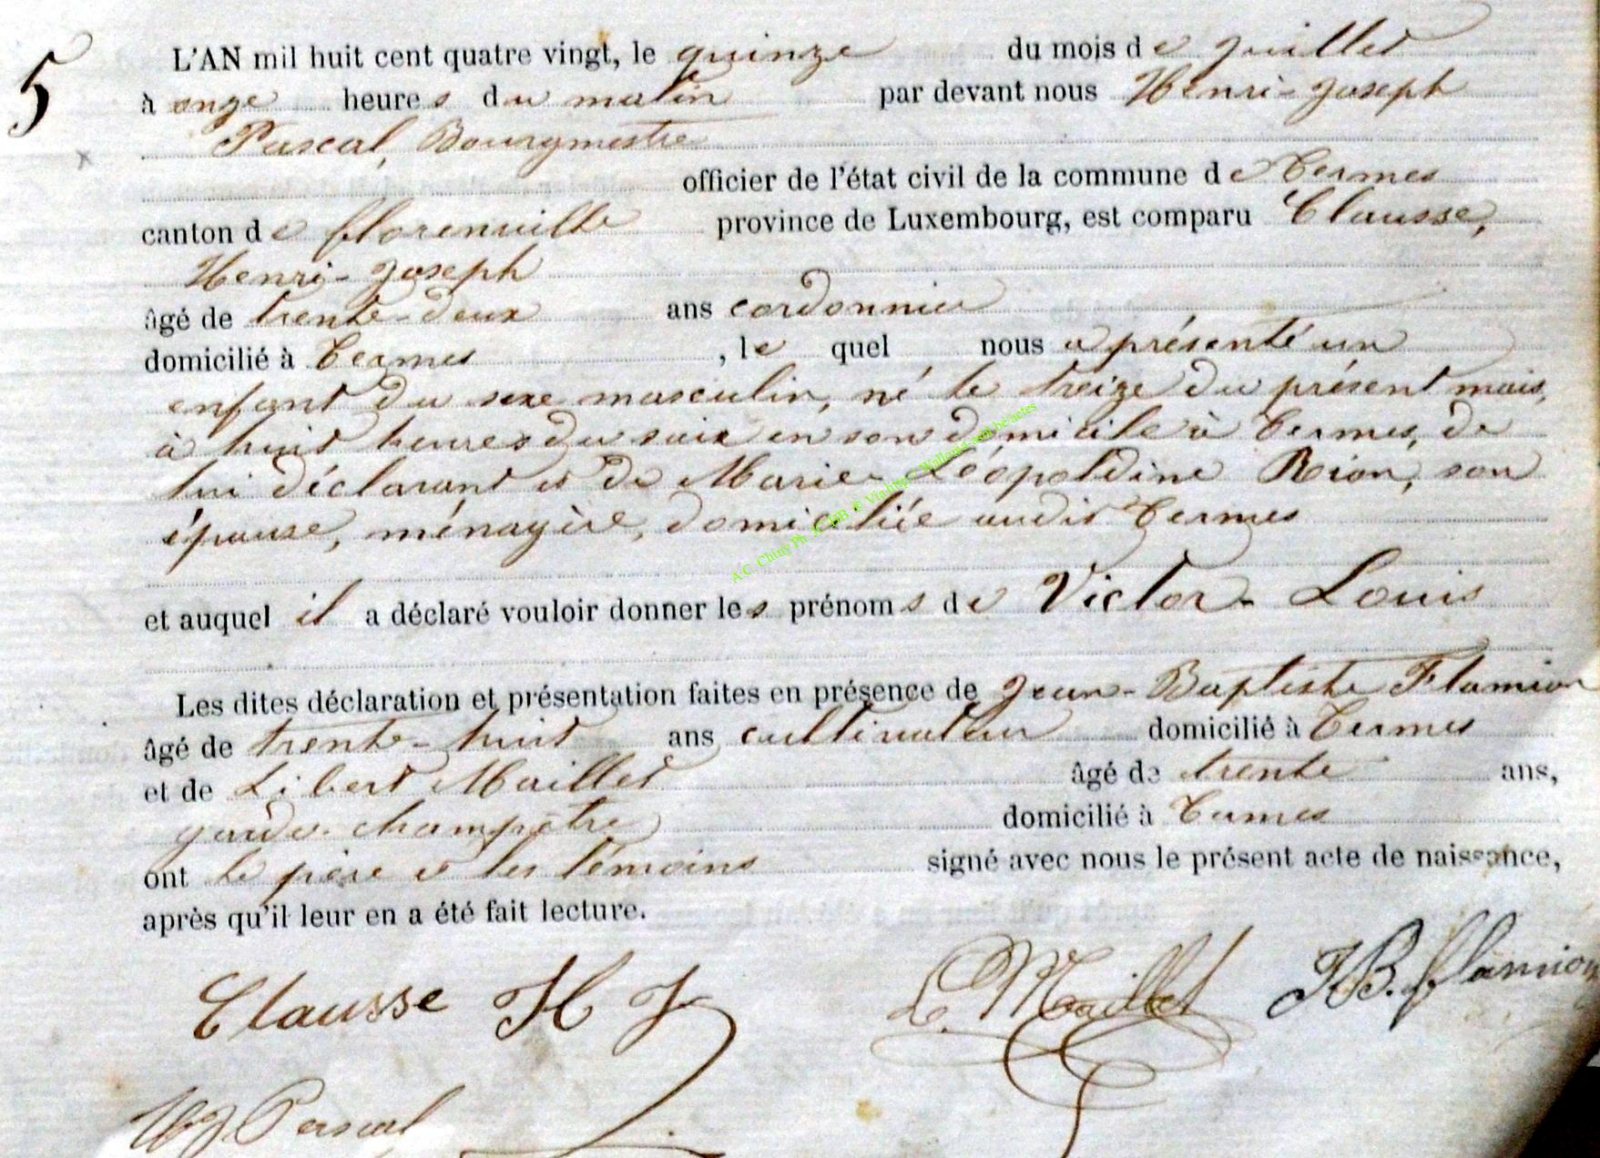 5
L'AN mil huit cent quatre vingt, le quinze du mois de Juillet
à onze heures du matin par devant nous Henri-Joseph
Pascal, Bourgmestre
officier de l'état civil de la commune de Termes
canton de florenville province de Luxembourg, est comparu Clausse,
Henri-Joseph
âgé de trente-deux ans cordonnier
domicilié à Termes , le quel nous a présenté un
enfant du sexe masculin, né le treize du présent mois,
à huit heures du soir en son domicile à Termes, de
lui déclarant et de Marie-Léopoldine Rion, son
épouse, ménagère, domiciliée audit Termes
et auquel il a déclaré vouloir donner les prénoms de Victor-Louis
Les dites déclaration et présentation faites en présence de Jean-Baptiste Flamion
âgé de trente-huit ans cultivateur domicilié à Termes
et de Libert Maillet âgé de trente ans,
garde-champêtre domicilié à Termes
ont le père et les témoins signé avec nous le présent acte de naissance,
après qu'il leur en a été fait lecture.
Clausse H J L. Maillet JB. flamion
HJ Pascal